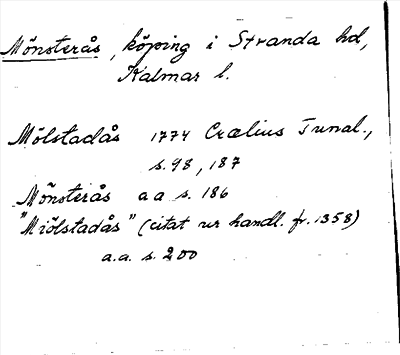 Mönsterås, köping i Stranda hd,
Kalmar l.
Mölstadås 1774 Crælius Tunal.,
s. 98, 187
Mönsterås a a s. 186
"Miölstadås" (citat ur handl. fr. 1358)
a.a. s. 200